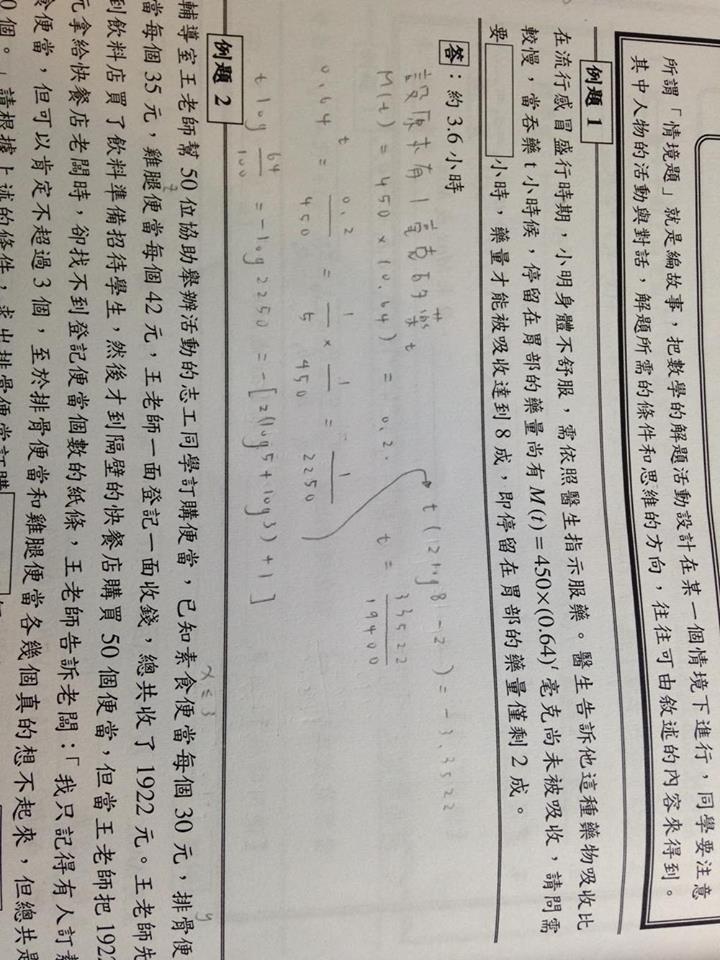 所謂「情境題」就是編故事，把數學的解題活動設計在某一個情境下進行，同學要注意
其中人物的活動與對話，解題所需的條件和思維的方向，往往可由敘述的內容來得到。
例題 1
在流行感冒盛行時期，小明身體不舒服，需依照醫生指示服藥。醫生告訴他這種藥物吸收比
較慢，當吞藥 t 小時候，停留在胃部的藥量尚有 M(t)＝450×(0.64)^t 毫克尚未被吸收，請問需
要 小時，藥量才能被吸收達到 8 成，即停留在胃部的藥量僅剩 2 成。
答：約 3.6 小時
設原本有 1 毫克
M(t) = 450 × (0.64)^t = 0.2.
t(12log8 - 2) = -3.3522
t = 33522/19400
0.64^t = 0.2/450 = 1/5 × 1/450 = 1/2250
t log 64/100 = -log 2250 = -[2(log5+log3)+1]
例題 2
輔導室王老師幫 50 位協助舉辦活動的志工同學訂購便當，已知素食便當每個 30 元，排骨便
x ≤ 3
y
當每個 35 元，雞腿便當每個 42 元，王老師一面登記一面收錢，總共收了 1922 元。王老師先
到飲料店買了飲料準備招待學生，然後才到隔壁的快餐店購買 50 個便當，但當王老師把 192
元拿給快餐店老闆時，卻找不到登記便當個數的紙條，王老師告訴老闆：「我只記得有人訂
食便當，但可以肯定不超過 3 個，至於排骨便當和雞腿便當各幾個真的想不起來，但總共是
0 個。」請根據上述的條件，求出排骨便當訂購